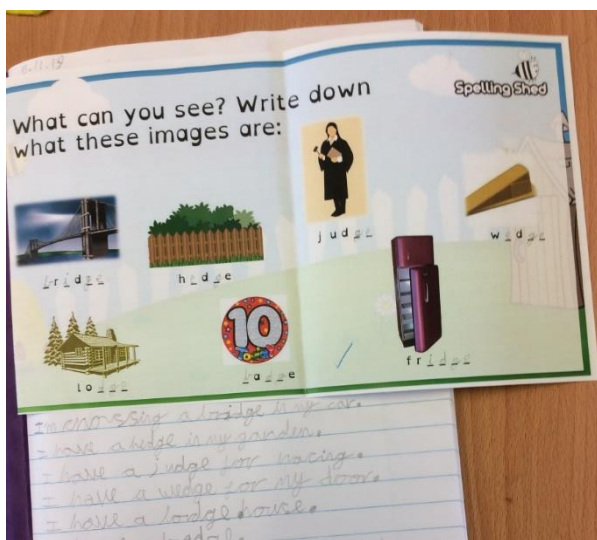 11.11.19
Spelling Shed
What can you see? Write down
what these images are:
judge
wedge
bridge
hedge
10
lodge
badge
fridge
I'm crossing a bridge in my car.
I have a hedge in my garden.
I have a judge for racing.
I have a wedge for my door.
I have a lordge house.